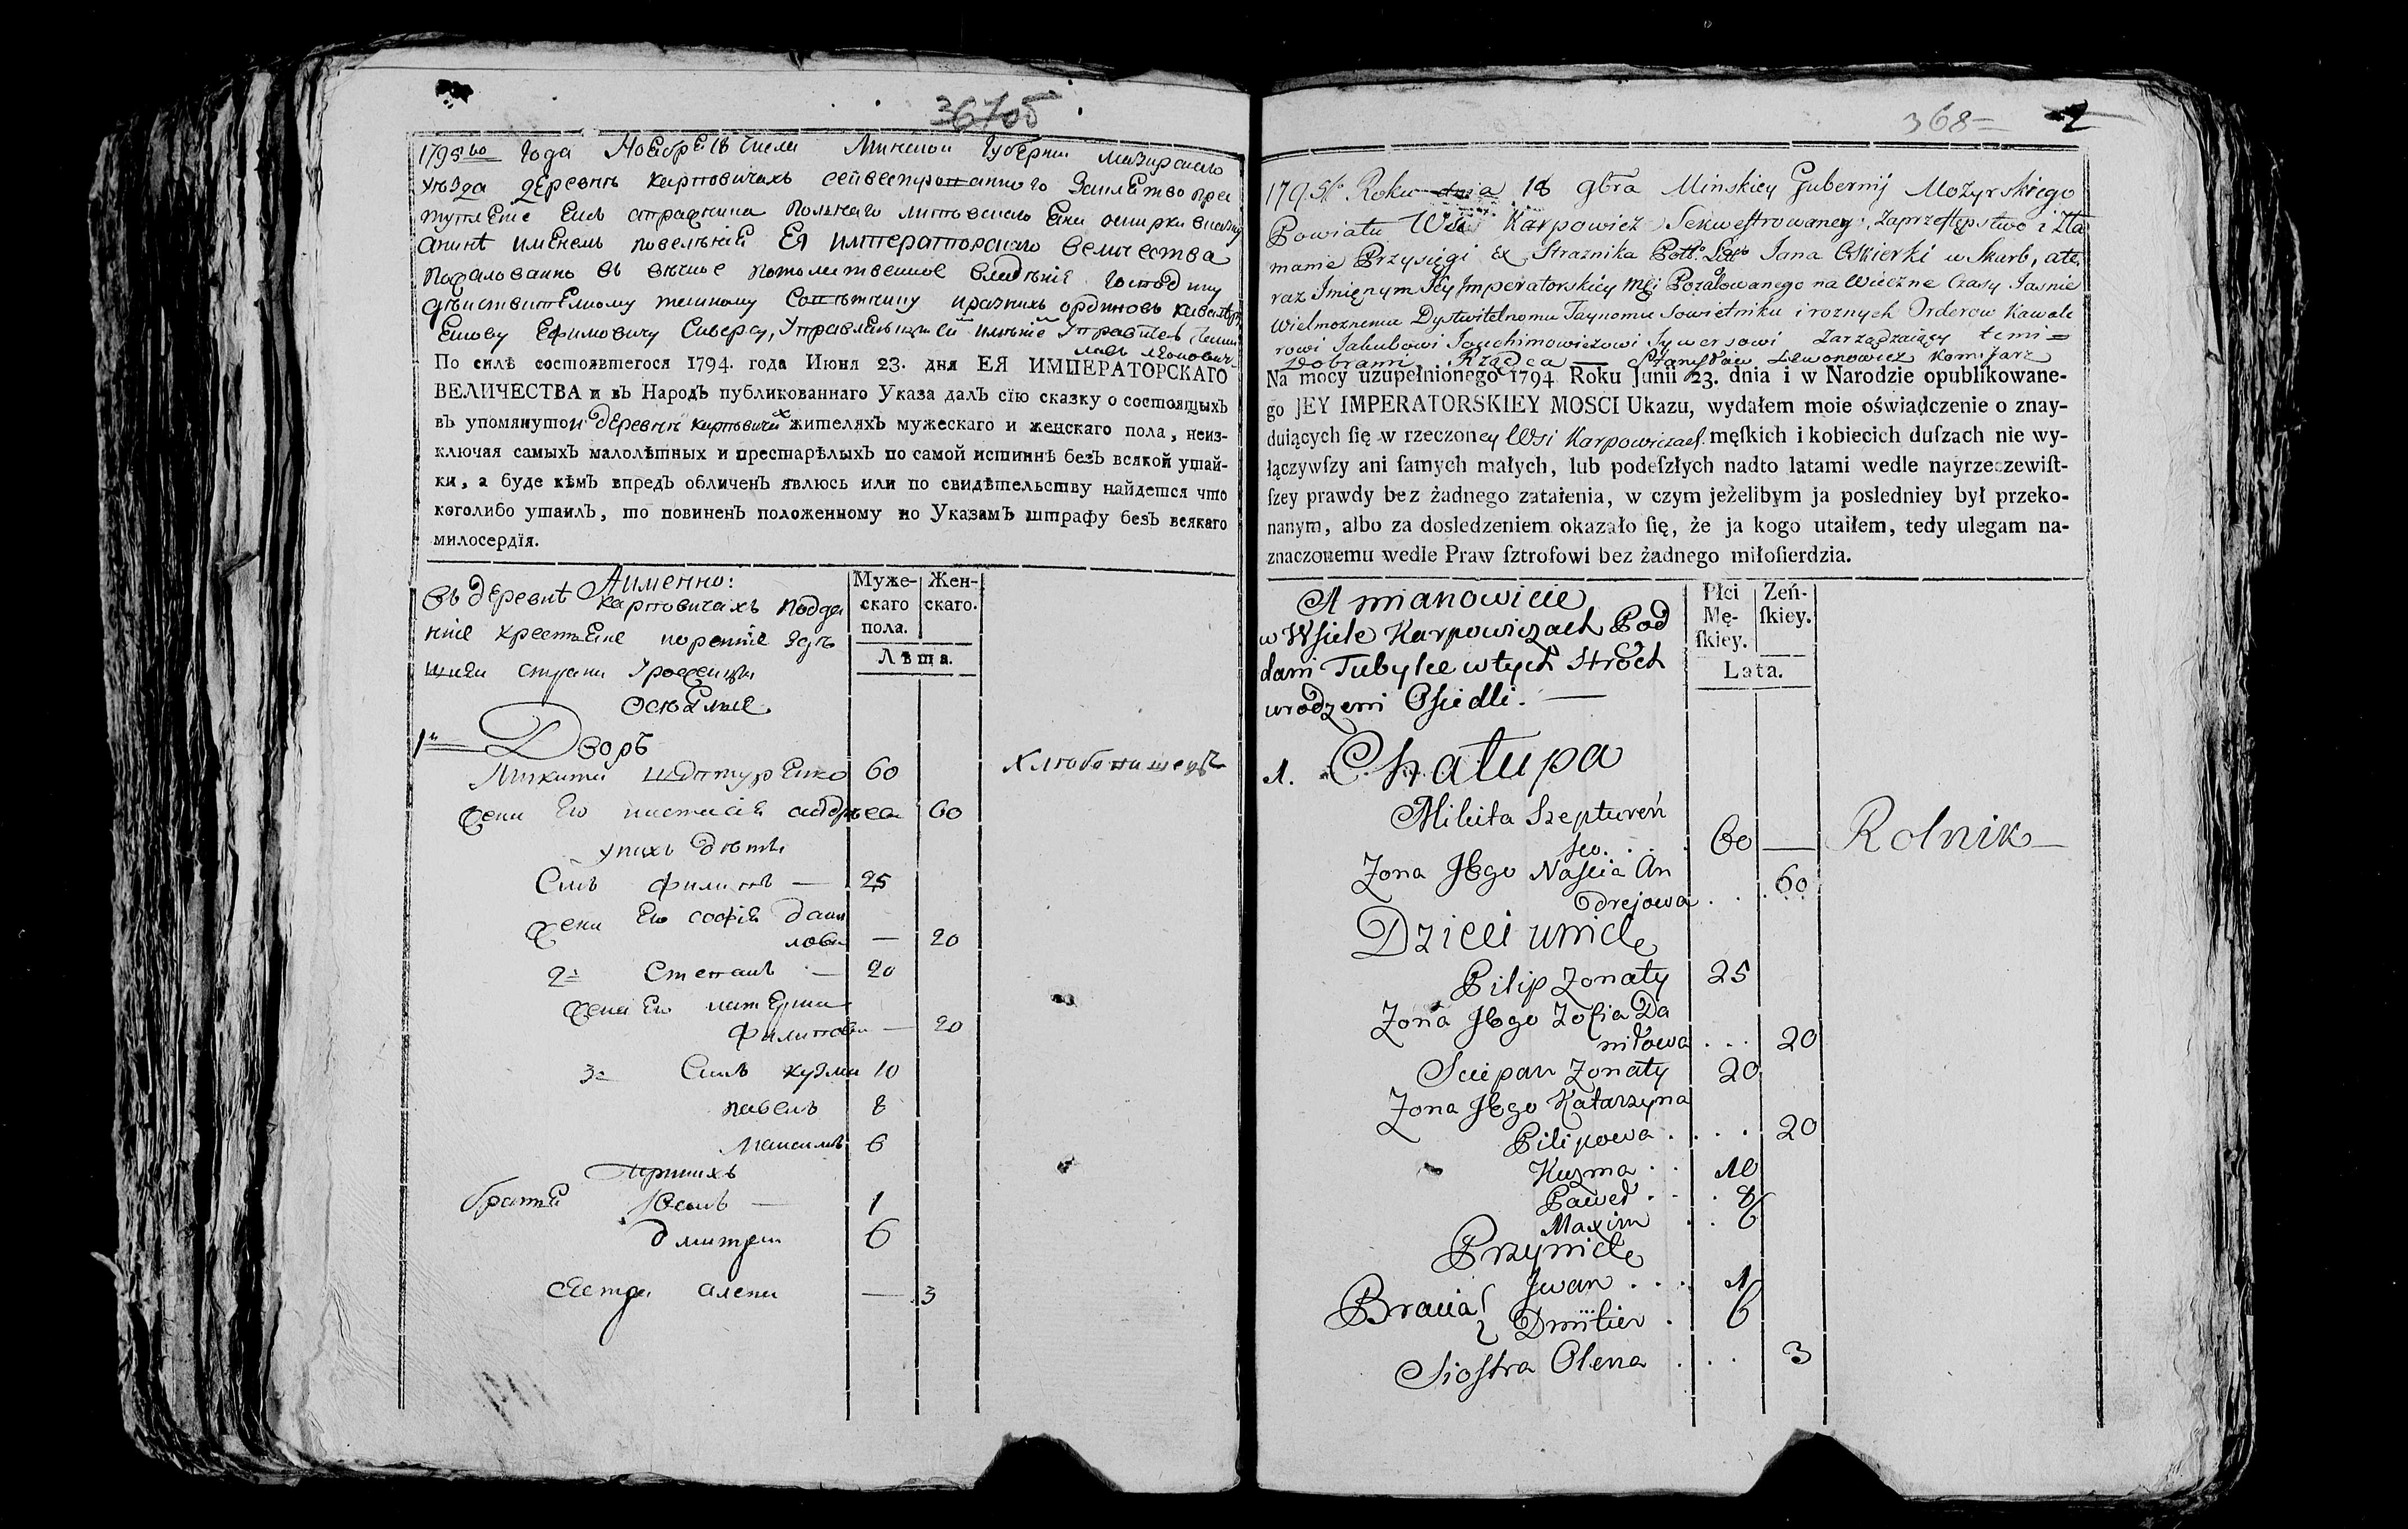 367об
1795го Года Ноебрѣ 18 числа Минской Губерни Мазирскаго
уѣзда деревнѣ Карповичахъ
Ея императорскаго величества
пожалованно въ вѣчное потомственное владѣние Господину
дѣиствителному таиному Советнику и разнихъ ординовъ кавалеру
Екову Ефимовичу Сиверсу,
По силѣ состоявшегося 1794. года Июня 23. дня ЕЯ ИМПЕРАТОРСКАГО
ВЕЛИЧЕСТВА и въ Народъ публикованнаго Указа далъ сїю сказку о состоящихъ
въ упомянутои деревнѣ Карповичахъ жителяхъ мужескаго и женскаго пола, неиз-
ключая самыхъ малолѣтныхъ и престарѣлыхъ по самой истиннѣ безъ всякой утай-
ки, а буде кѣмъ впредъ обличенъ явлюсь или по свидѣтельству найдется что
коголибо утаилъ, то повиненъ положенному по Указамъ штрафу безъ всякаго
милосердїя.
Аименно:
въ деревнѣ Карповичахъ подда
ние крестяне
Муже-скаго пола.
Жен-скаго.
Лѣта.
1й Дворъ
Микита Шептуренко 60
жена Его настасия андреева 60
у нихъ дѣти
Синъ Филипъ — 25
жена Его софия дани
лова — 20
2й Степанъ — 20
жена Его катерина
Филипова — 20
3й Синъ кузма 10
павелъ 8
максимъ 6
При нихъ
братя Иванъ — 1
дмитри 6
сестра алена — 3
368 2
1795o Roku dnia 18 9bra Minskiey Gubernij Mozyrskiego
Powiatu Wsi Karpowicz Sekwestrowaney, zaprzestępstwo i zła
manie Przysięgi Ex Strażnika Poll: Litto Jana Oskierki w Skarb, ate
raz Imięnym Jey Imperatorskiey Mci Pozałowanego na Wieczne Czasy Jasnie
Wielmoznemu Dystwitelnomu Taynomu Sowietniku i roznych Orderow Kawale
rowi Jakubowi Joachimowiczowi Sywersowi Zarządzaiący temi=
Dobrami Rządca — Stanisław Lewonowicz Komisarz
Na mocy uzupełnionego 1794 Roku Junii 23. dnia i w Narodzie opublikowane-
go JEY IMPERATORSKIEY MOSCI Ukazu, wydałem moie oświadczenie o znay-
duiących ſię w rzeczoney Wsi Karpowiczach męſkich i kobiecich duſzach nie wy-
łączywſzy ani ſamych małych, lub podeſzłych nadto latami wedle nayrzeczewiſt-
ſzey prawdy bez żadnego zataienia, w czym jeżelibym ja posledniey był przeko-
nanym, albo za dosledzeniem okazało ſię, że ja kogo utaiłem, tedy ulegam na-
znaczonemu wedle Praw ſztrofowi bez żadnego miłoſierdzia.
A mianowicie
w Wsiele Karpowiczach Pod
dani Tubylce w tych Stroch
urodzeni Osiedli. —
Płci Mę-ſkiey.
Zeń-ſkiey.
Lata.
1. Chałupa
Mikita Szeptureń
ko. . . . 60 — Rolnik —
Zona Jego Nascia An
drejowa . . . 60
Dzieci u nich
Pilip Zonaty 25
Zona Jego Zofia Da
niłowa . . . 20
Sciepan Zonaty 20
Zona Jego Katarzyna
Pilipowa . . . . 20
Kuzma . . 10
Paweł . . . 8
Maxim . . 6
Przy nich
Bracia Jwan . . . . 1
Dmitier . 6
Siostra Olena . . . 3